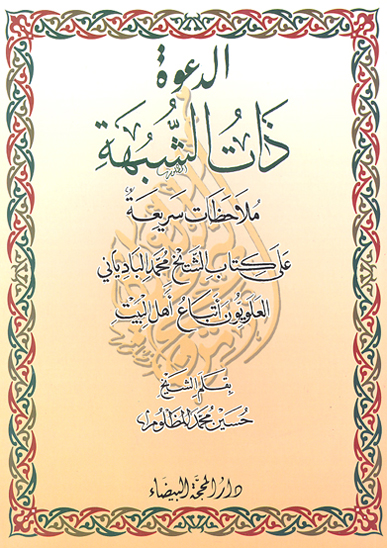 الدعوة
ذَاتُ الشُّبُهَةِ
مُلَاحَظَات سَرِيعَةٌ
عَلى كِتابِ الشَّيْخِ مُحَمَّد البادياني
العَلَوِيُّونَ أَتْبَاعُ أَهْلِ البَيْتِ
بِقَلَمِ الشَّيْخِ
حُسَيْن مُحَمَّد المَظلوم
دار المحجّة البيضاء